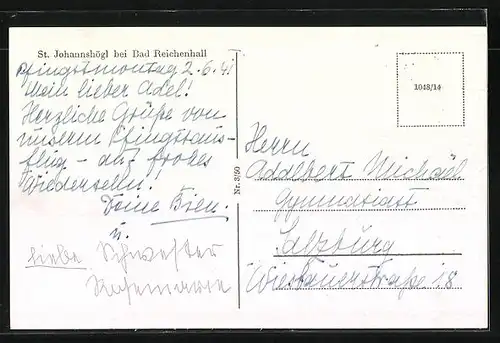 St. Johannshögl bei Bad Reichenhall
Pfingstmontag 2.6.41
Mein lieber Adel!
Herzliche Grüße von
unserm Pfingstaus-
flug - auf frohes
Wiedersehn!
Deine
u.
Liebe Schwester
Rosemarie
Nr. 3/50
1048/14
Herrn
Addlbert Michael
Gymnasiast
Salzburg
Wiesbauerstraße 18